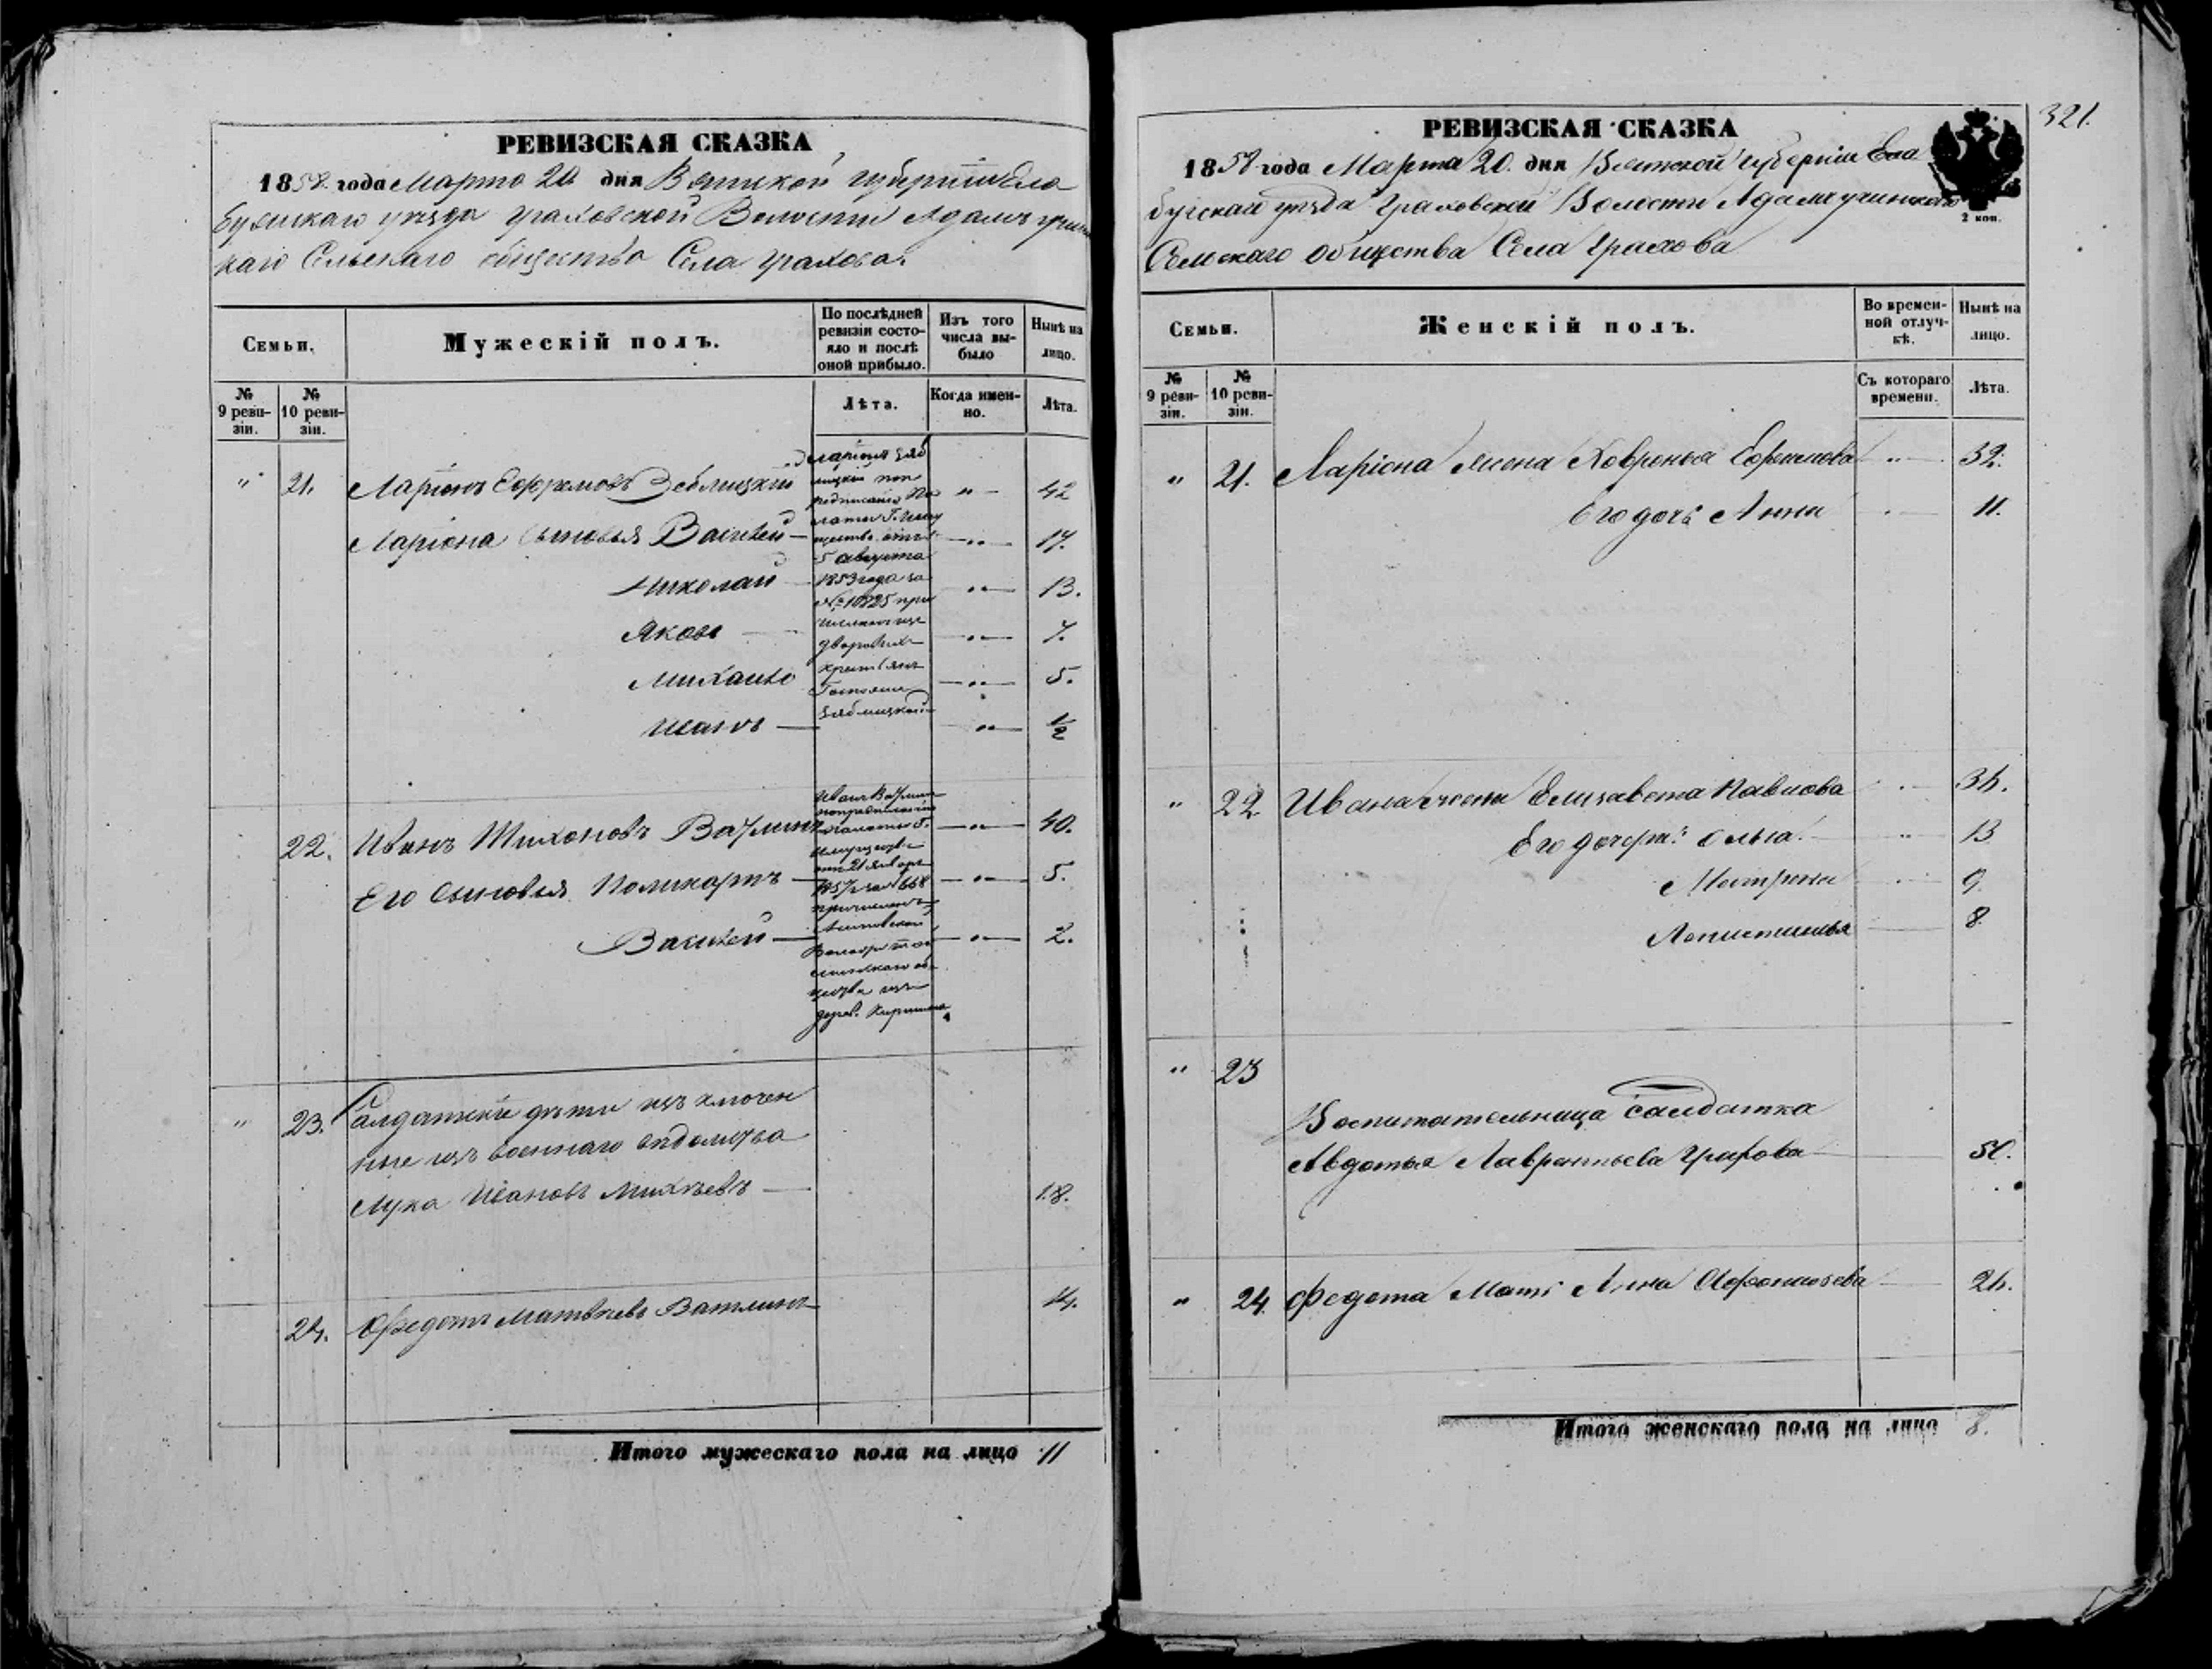 РЕВИЗСКАЯ СКАЗКА
1858 года Марта 20 дня Вятской губернии Ела
бужскаго уѣзда Граховской Волости Адамъучин
скаго Сельскаго общества Села Грахова.
Семьи.
Мужескій полъ.
По послѣдней
ревизіи состо-
яло и послѣ
оной прибыло.
Изъ того
числа вы-
было
Нынѣ на
лицо.
№
9 реви-
зіи.
№
10 реви-
зіи.
Лѣта.
Когда имен-
но.
Лѣта.
" 21. Ларіонъ Ефремовъ " 42
Ларіона сыновья Василей " 17.
Николай " 13.
Яковъ " 7.
Михайло " 5.
Иванъ " ½
5 августа
1853 года за
№ 10225 при
дворовыхъ
крестьянъ
22. Иванъ Тихоновъ " 40.
Его сыновья Поликарпъ " 5.
Василей " 2.
" 23. Салдатскіе дѣти изключен
ные изъ военнаго вѣдомства
Лука Ивановъ Михѣевъ 18.
24. Федотъ Матвѣевъ Ватлинъ 14.
Итого мужескаго пола на лицо 11
321.
РЕВИЗСКАЯ СКАЗКА
1858 года Марта 20. дня Вятской губерніи Ела
бужскаго уѣзда Граховской Волости Адамъучинскаго
Сельскаго общества Села Грахова
2 коп.
Семьи.
Женскій полъ.
Во времен-
ной отлуч-
кѣ.
Нынѣ на
лицо.
№
9 реви-
зіи.
№
10 реви-
зіи.
Съ котораго
времени.
Лѣта.
" 21. Ларіона жена Ховронья Ефремова " 32.
Его дочь Анна 11.
" 22. Ивана жена Елизавета Павлова 34.
Его дочери: Ольга. " 13
Матрена 9.
8.
" 23
Воспитательница Салдатка
Авдотья Лаврентьева Грахова 50.
" 24. Федота Мать Анна 24.
Итого женскаго пола на лицо 8.